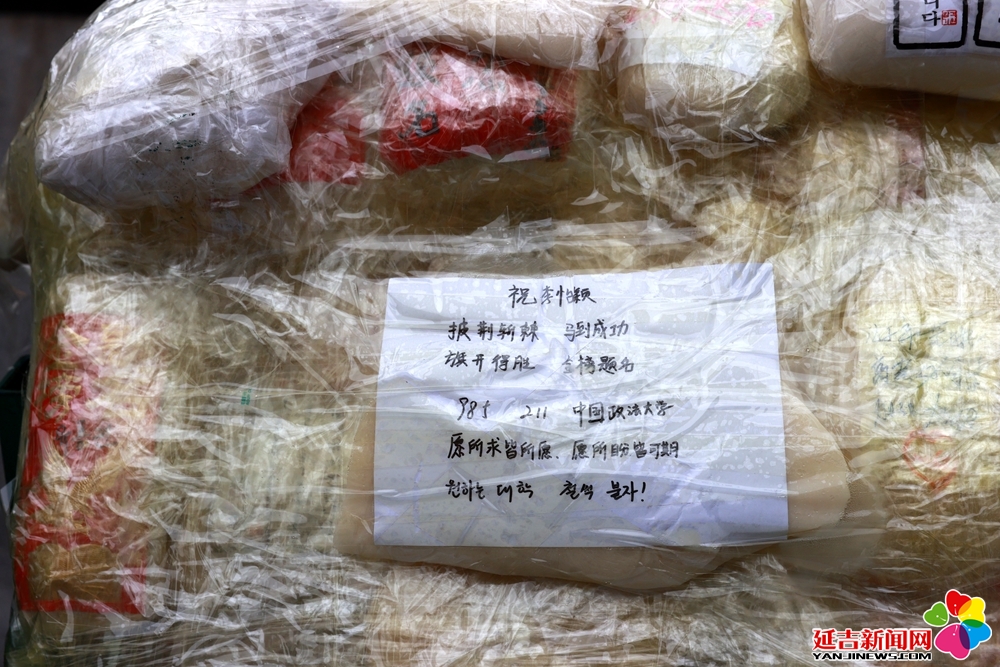 니다
祝 李怡颖
披荆斩棘 马到成功
旗开得胜 金榜题名
985 / 211 中国政法大学
愿所求皆所愿、愿所盼皆可期
원하는 대학 철썩 붙자!
延吉新闻网
YANJINEWS.COM